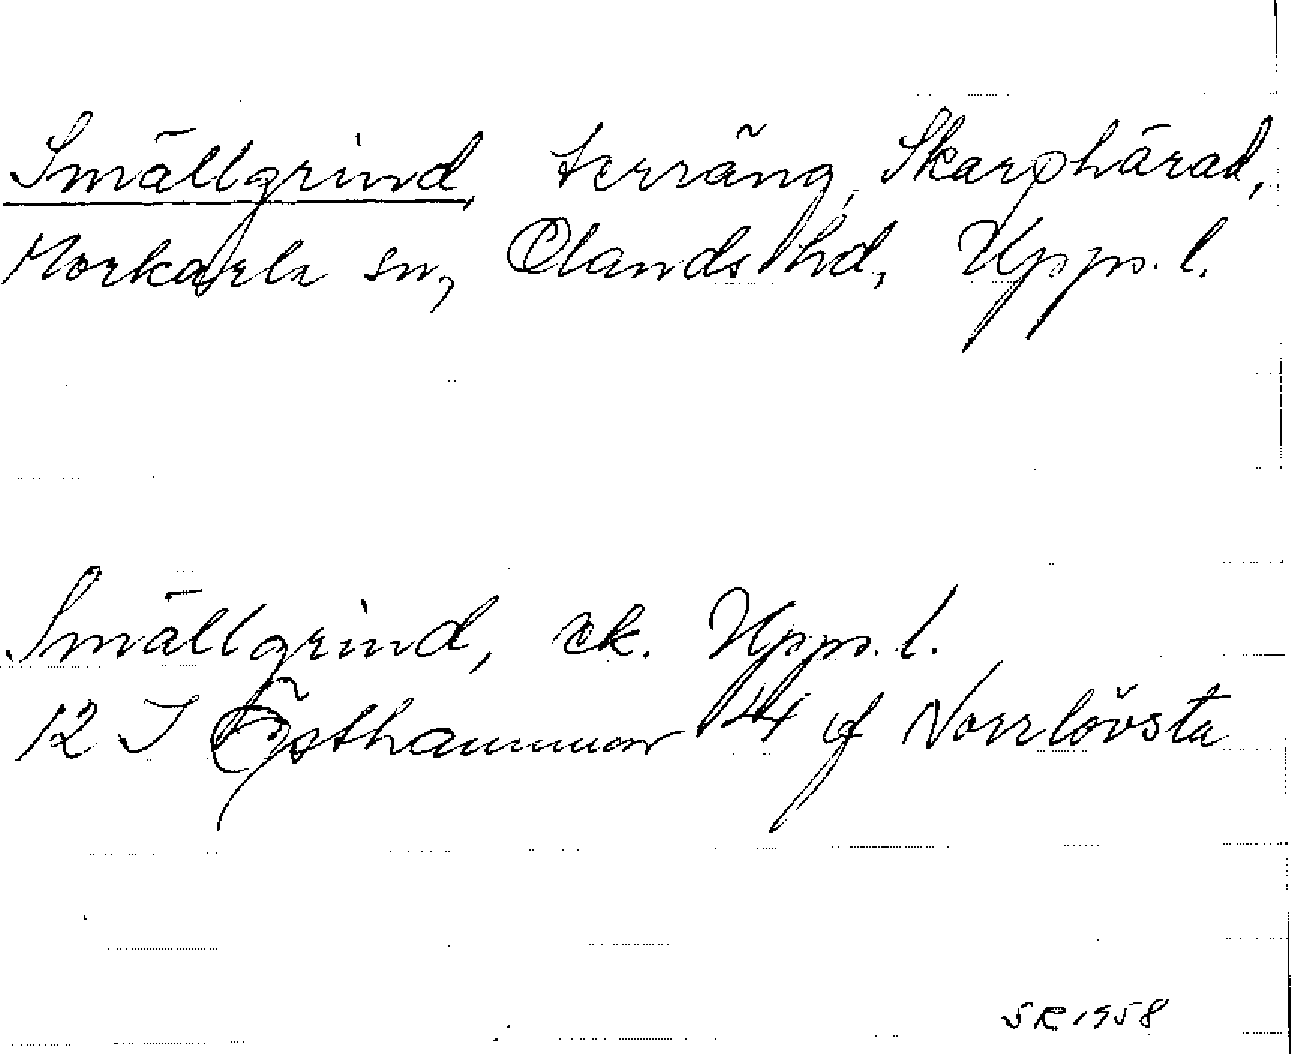 Smällgrind, terräng, Skarphärad,
Morkarla sn, Olands hd, Upps. l.
Smällgrind, ek. Upps. l.
12 I Östhammar 44 f Norrlövsta
SR 1958